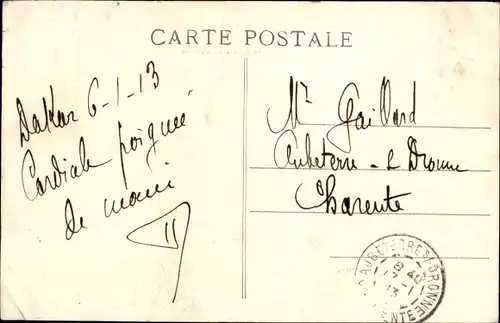 CARTE POSTALE
Dakar 6-1-13
Cordiale poignée
de main
Mr Gaillard
Aubeterre - s Dronne
Charente
AUBETERRE S/ DRONNE
8 40
17 - 1
13